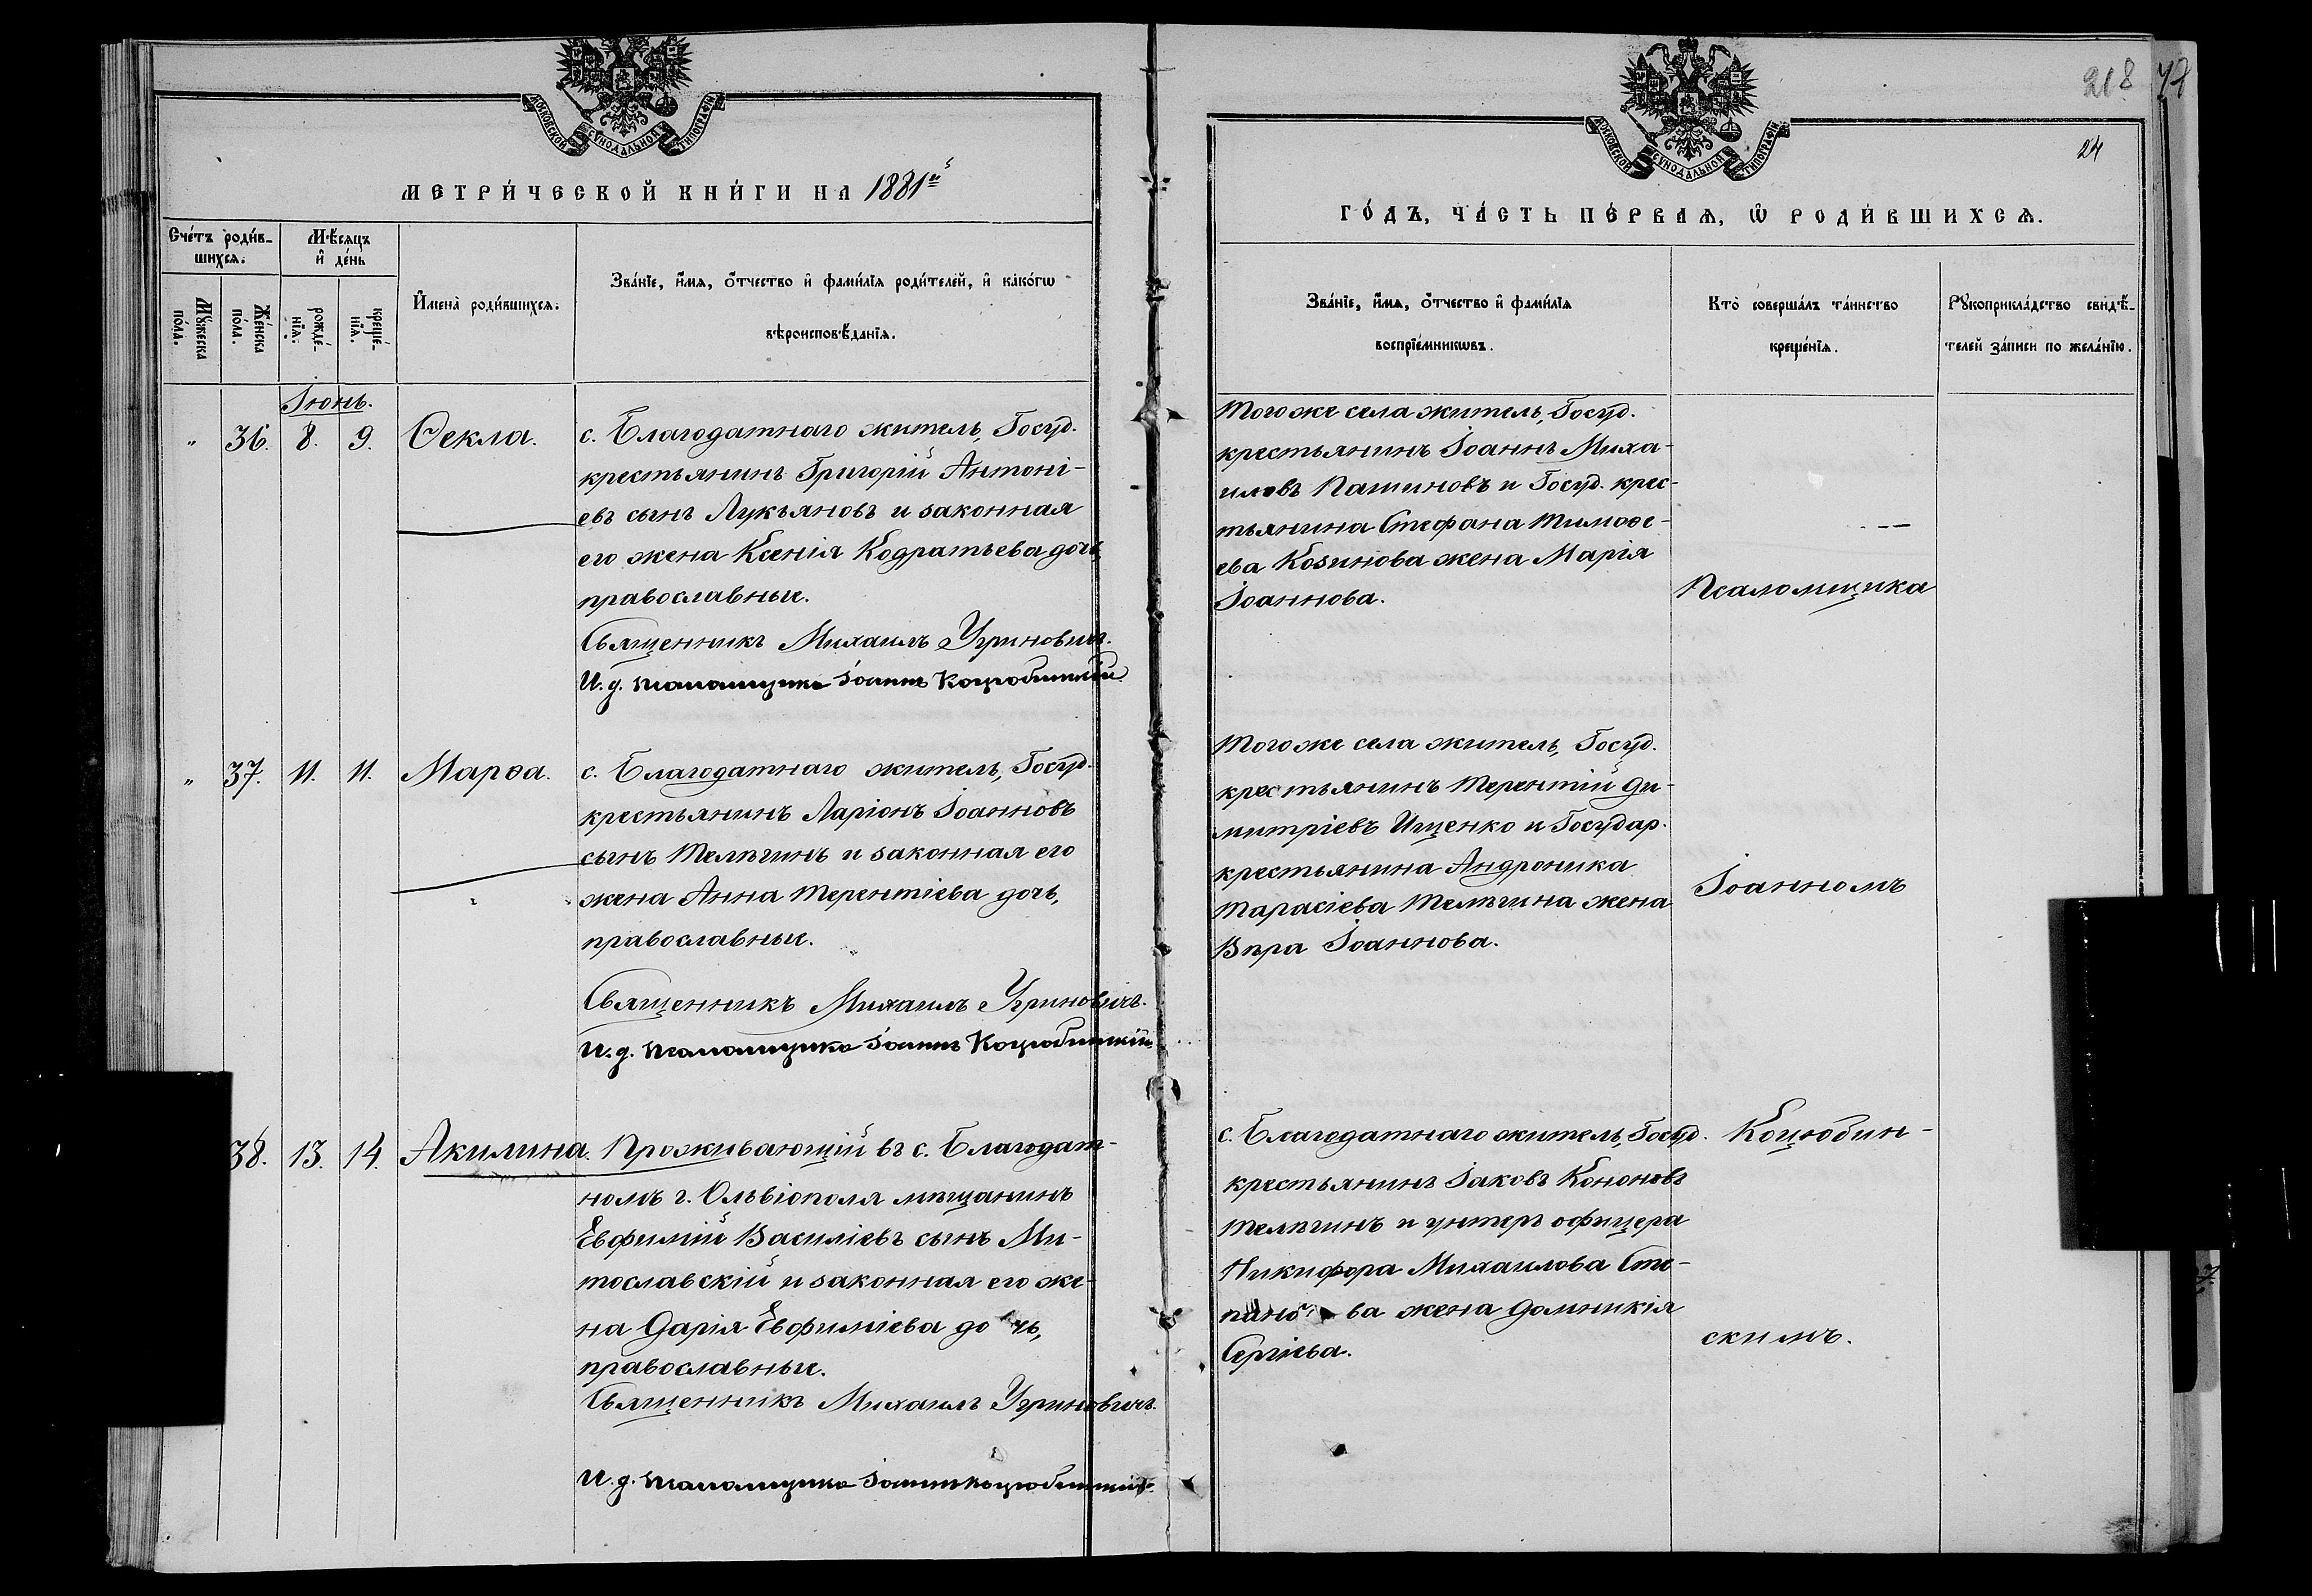 МОСКОВСКОЙ СѴНОДАЛЬНОЙ ТИПОГРАФІИ
МЕТРИ́ЧЕСКОЙ КНИ́ГИ НА 1881й
Сче́тъ роди́в-
шихся.
Мѣ́сяцъ
и҆ де́нь
Мꙋ́жеска
по́ла.
Же́нска
по́ла.
рожде́-
нїя.
креще́-
нїя.
И҆мена̀ роди́вшихся.
Зва́нїе, и҆́мѧ, ѻ҆́тчество и҆ фами́лїѧ роди́телей, и҆ како́гѡ
вѣроисповѣ́данїѧ.
Іюнь.
" 36. 8. 9. Ѳекла.
с. Благодатнаго житель, Госуд.
крестьянинъ Григорій Антоні-
евъ сынъ Лукьяновъ и законная
его жена Ксенія Кодратьева дочь,
православные.
Священникъ Михаилъ Угриновичъ.
И. д. псаломщика Іоаннъ Коцюбинскій
" 37. 11. 11. Марѳа.
с. Благодатнаго житель, Госуд.
крестьянинъ Ларіонъ Іоанновъ
сынъ Телѣгинъ и законная его
жена Анна Терентіева дочь,
православные.
Священникъ Михаилъ Угриновичъ.
И. д. псаломщика Іоаннъ Коцюбинскій
38. 13. 14. Акилина.
Проживающій въ с. Благодат-
номъ г. Ольвіополя мѣщанинъ
Евфимій Василіевъ сынъ Ми-
тославскій и законная его же-
на Дарія Евфиміева дочь,
православные.
Священникъ Михаилъ Угриновичъ.
И. д. псаломщика Іоаннъ Коцюбинскій
218 77
24
МОСКОВСКОЙ СѴНОДАЛЬНОЙ ТИПОГРАФІИ
ГО́ДЪ, ЧА́СТЬ ПЕ́РВАѦ, Ѽ РОДИ́ВШИХСѦ.
Зва́нїе, и҆́мѧ, ѻ҆́тчество и҆ фами́лїѧ
воспрїе́мникѡвъ.
Кто̀ соверша́лъ та́инство
креще́нїѧ.
Рꙋкоприкла́дство свидѣ́-
телей за́писи по жела́нїю.
Того же села житель, Госуд.
крестьянинъ Іоаннъ Миха-
иловъ Пашиновъ и Госуд. крес-
тьянина Стефана Тимоѳе-
ева Козинова жена Марія
Іоаннова.
Псаломщика
Того же села житель, Госуд.
крестьянинъ Терентій Ди-
митріевъ Ищенко и Государ.
крестьянина Андроника
Тарасіева Телѣгина жена
Вѣра Іоаннова.
Іоанномъ
с. Благодатнаго житель, Госуд.
крестьянинъ Іаковъ Кононовъ
Телѣгинъ и унтеръ офицера
Никифора Михаилова Сте-
панова жена Домникія
Сергіева.
Коцюбин-
скимъ.